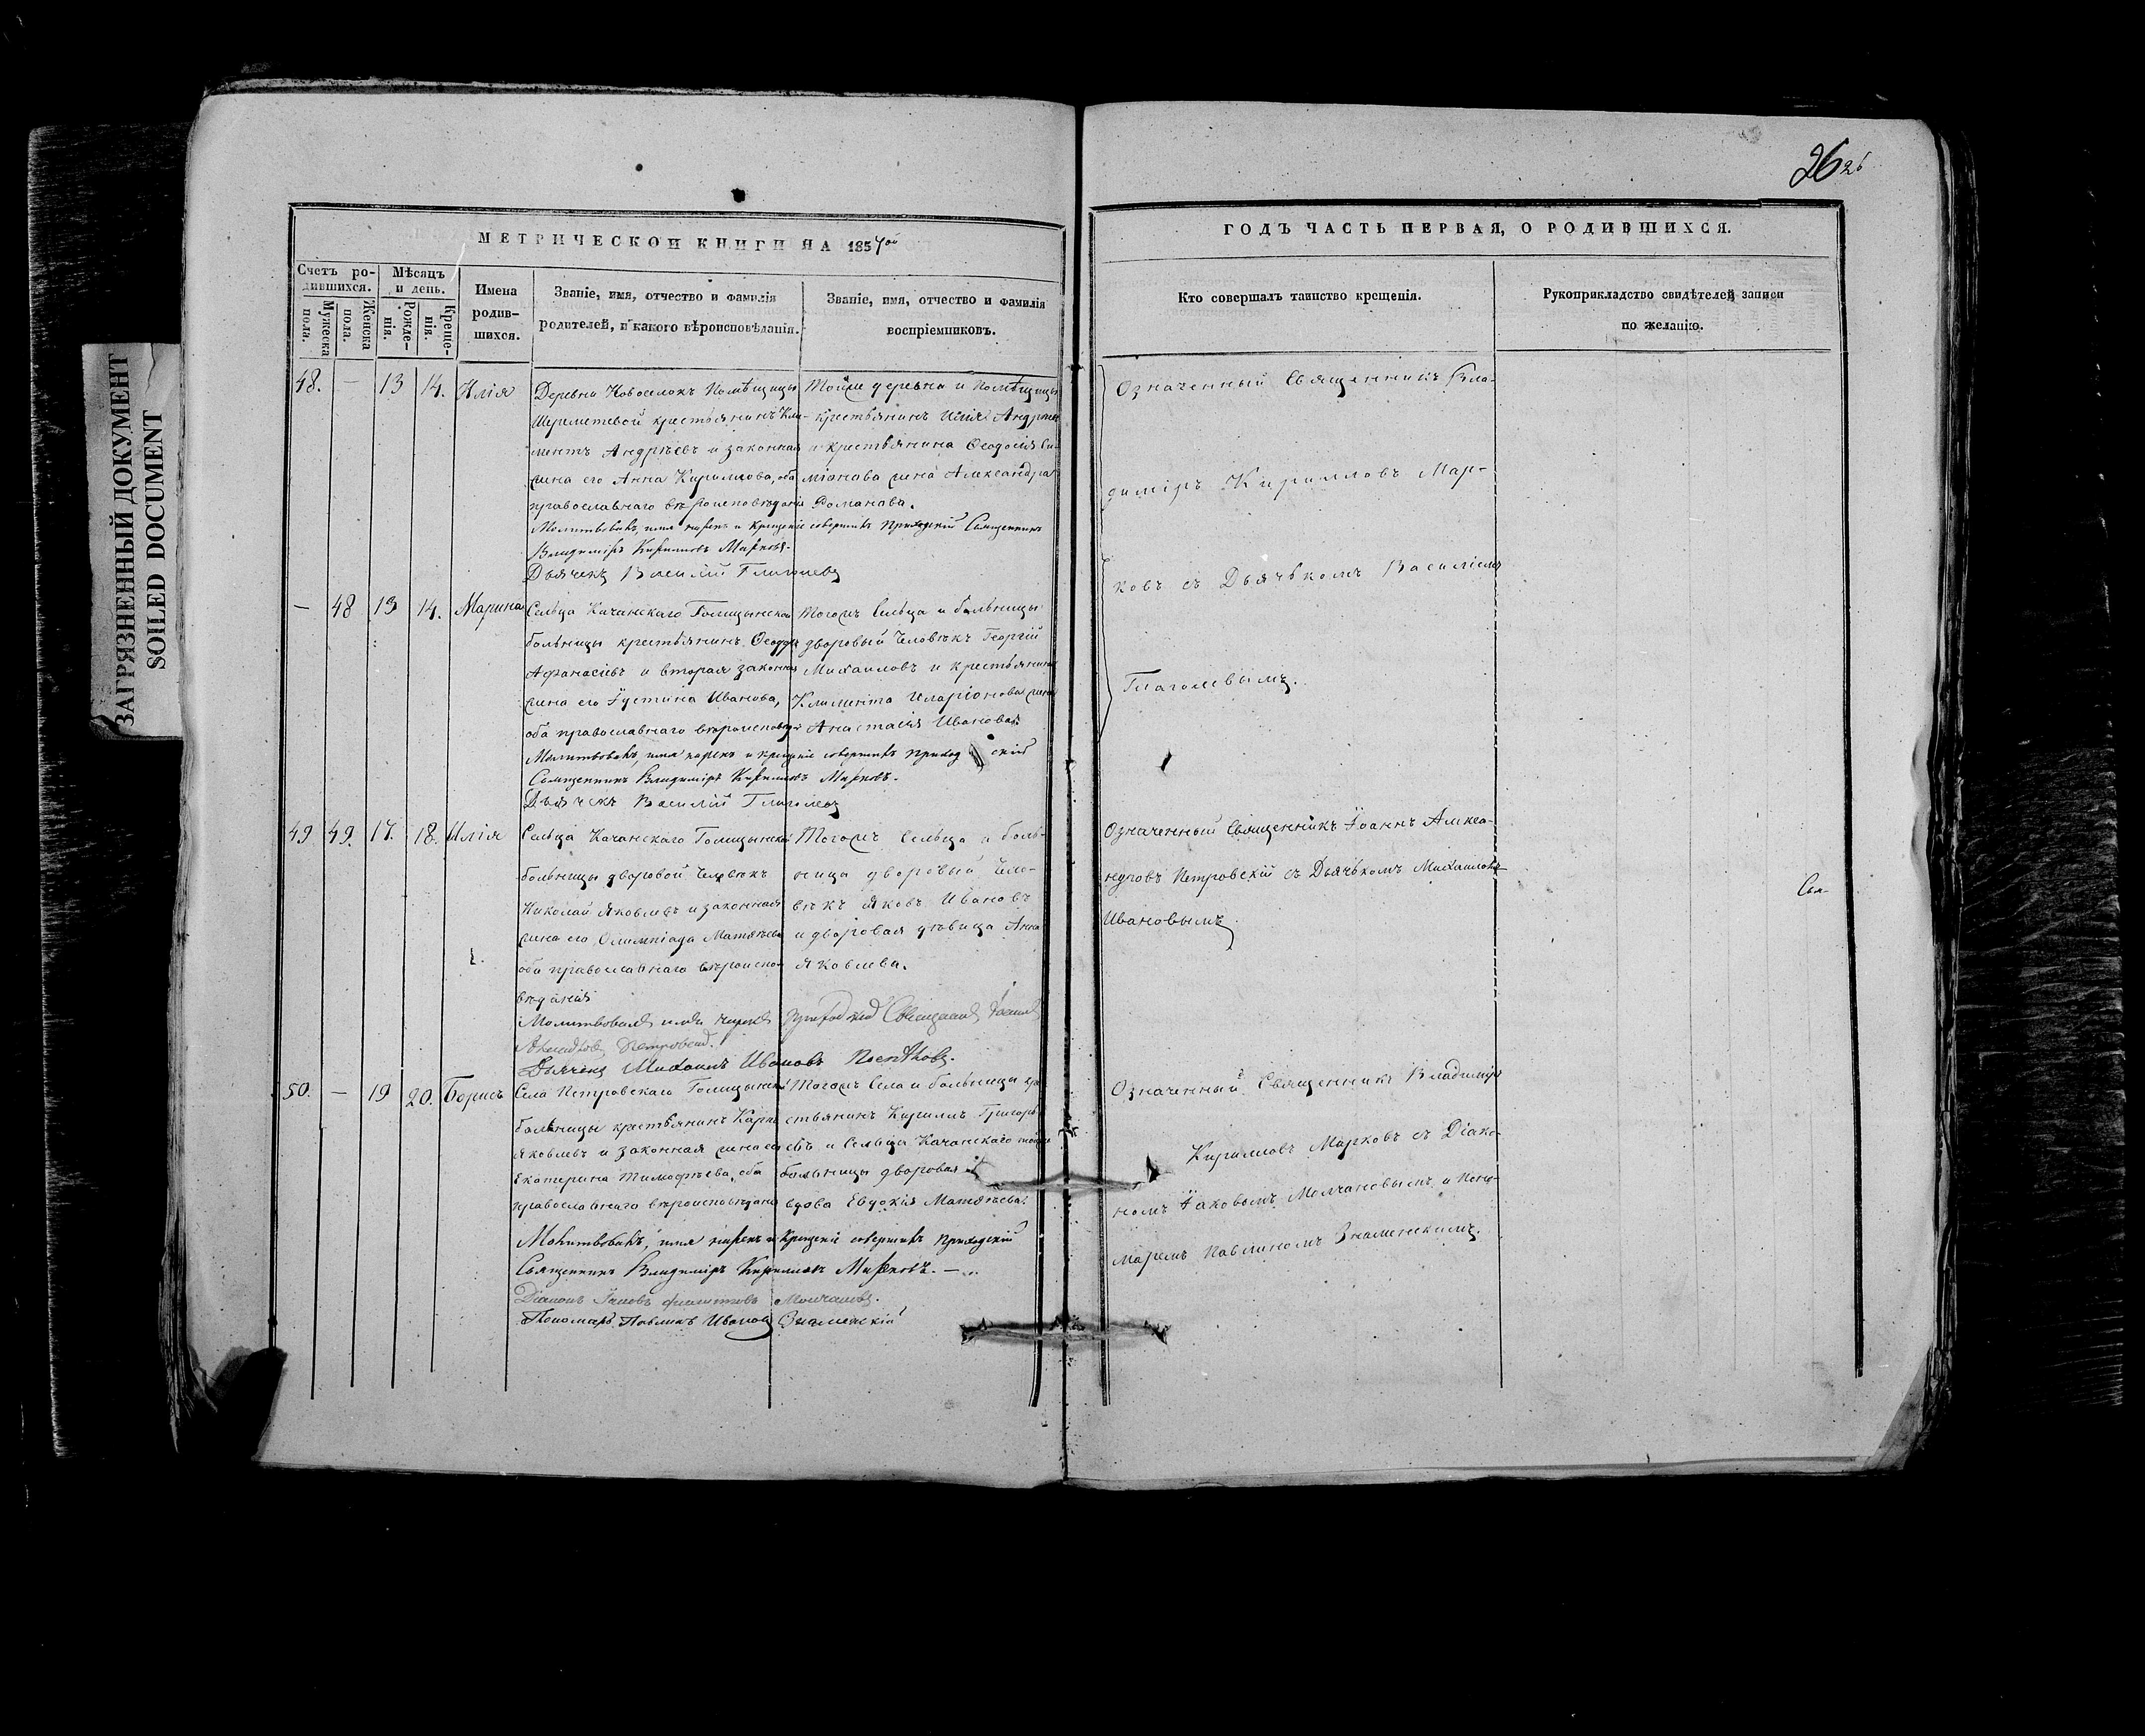 26 26
ЗАГРЯЗНЕННЫЙ ДОКУМЕНТ
SOILED DOCUMENT
МЕТРИЧЕСКОЙ КНИГИ НА 1854ой
Счетъ родившихся.
Мужеска пола.
Женска пола.
Мѣсяцъ и день.
Рожденія.
Крещенія.
Имена родившихся.
Званіе, имя, отчество и фамилія
родителей, и какого вѣроисповѣданія.
Званіе, имя, отчество и фамилія
воспріемниковъ.
48. — 13 14. Илія
Деревни Новоселокъ Помѣщицы
Шереметевой крестьянинъ Кли-
ментъ Андрѣевъ и законная
жена его Анна Кириллова, оба
православнаго вѣроисповѣданія
Тойже деревни и Помѣщицы
крестьянинъ Илія Андреевъ
и крестьянина Ѳеодосія Си-
міонова жена Александра
Романова.
Молитвовалъ, имя нарекъ и крещеніе совершилъ Приходскій Священникъ
Владиміръ Кирилловъ Марковъ.
Дьячекъ Василій Глаголевъ
— 48 13 14. Марина
Сельца Качанскаго Голицынской
больницы крестьянинъ Ѳеодоръ
Афанасьевъ и вторая законная
жена его Іустина Иванова,
оба православнаго вѣроисповѣд.
Тогожъ Сельца и больницы
дворовый человѣкъ Георгій
Михаиловъ и крестьянина
Климента Иларіонова жена
Анастасія Иванова.
Молитвовалъ, имя нарекъ и крещеніе совершилъ Приходскій
Священникъ Владиміръ Кирилловъ Марковъ.
Дьячекъ Василій Глаголевъ
49. 49. 17. 18. Илія
Сельца Качанскаго Голицынской
больницы дворовой человѣкъ
Николай Яковлевъ и законная
жена его Олимпіада Матвѣева
оба православнаго вѣроиспо-
вѣданія
Тогожъ Сельца и боль-
ницы дворовый чело-
вѣкъ Яковъ Ивановъ
и дворовая дѣвица Анна
Яковлева.
Молитвовалъ имя нарекъ Приходскій Священникъ Іоаннъ
Александровъ Петровскій.
Дьячекъ Михаилъ Ивановъ
50. — 19 20. Борисъ
Села Петровскаго Голицынской
больницы крестьянинъ Карпъ
Яковлевъ и законная жена его
Екатерина Тимофѣева, оба
православнаго вѣроисповѣданія
Тогожъ Села и больницы кре-
стьянинъ Кириллъ Григорь-
евъ и Сельца Качанскаго тойже
больницы дворовая
вдова Евдокія Матвѣева.
Молитвовалъ, имя нарекъ и крещеніе совершилъ Приходскій
Священникъ Владиміръ Кирилловъ Марковъ. —
Діаконъ Іаковъ Филиповъ Молчановъ.
Пономарь Павлинъ Ивановъ Знаменскій
ГОДЪ ЧАСТЬ ПЕРВАЯ, О РОДИВШИХСЯ.
Кто совершалъ таинство крещенія.
Рукоприкладство свидѣтелей записи
по желанію.
Означенный Священникъ Вла-
диміръ Кирилловъ Мар-
ковъ съ Дьячькомъ Василіемъ
Глаголевымъ.
Означенный Священникъ Іоаннъ Алекса-
ндровъ Петровскій съ Дьячькомъ Михаиломъ
Ивановымъ
Означенный Священникъ Владиміръ
Кирилловъ Марковъ съ Діако-
номъ Іаковымъ Молчановымъ и Поно-
маремъ Павлиномъ Знаменскимъ.
Свя-